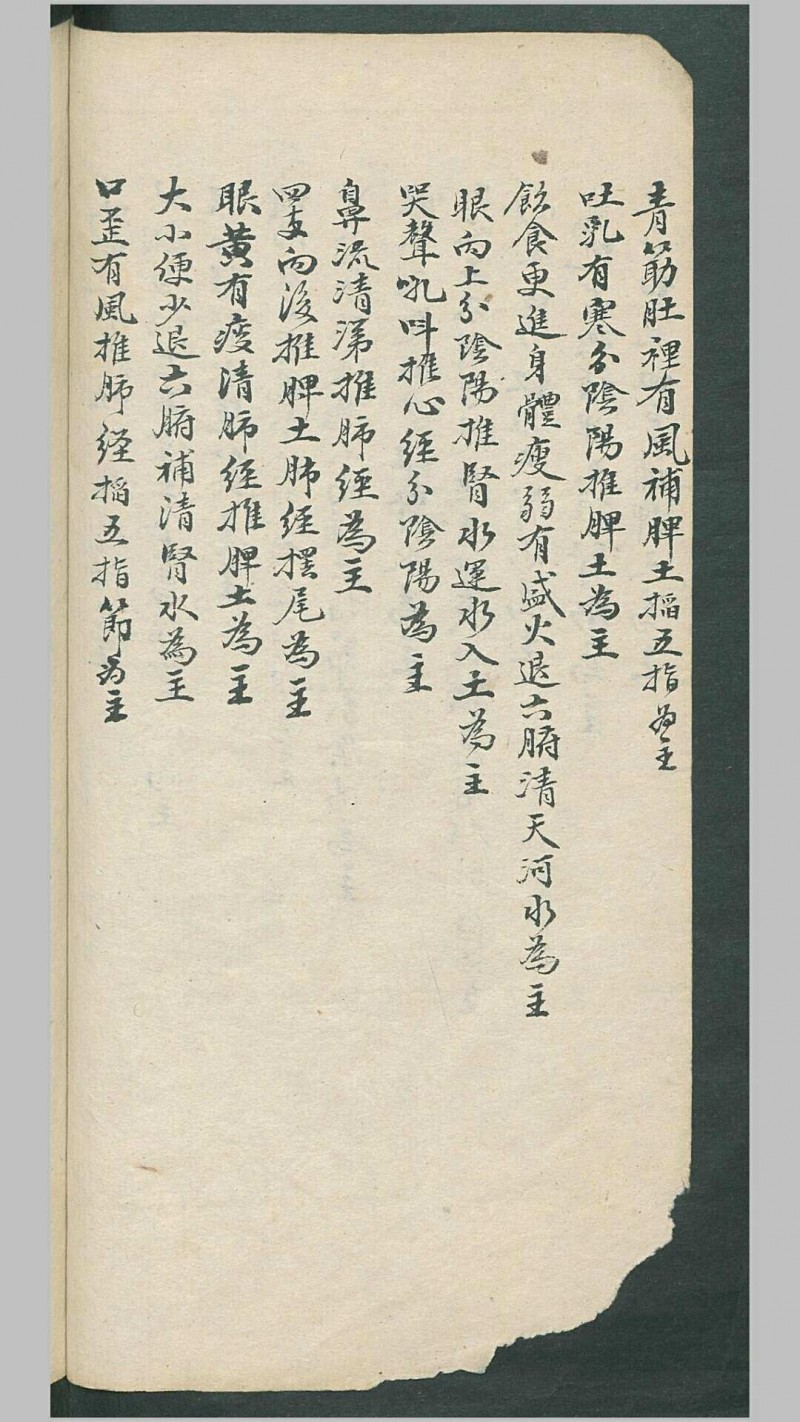 青筋肚裡有風補脾土搯五指為主
吐乳有寒分陰陽推脾土為主
飲食更進身體瘦弱有盛火退六腑清天河水為主
眼向上分陰陽推腎水運水入土為主
哭聲吼呌推心經分陰陽為主
鼻流清涕推肺經為主
四支向後推脾土肺經擺尾為主
眼黃有痰清肺經推脾土為主
大小便少退六腑補清腎水為主
口歪有風推肺經搯五指節為主